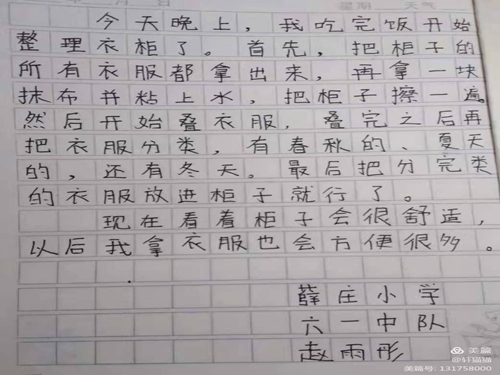 星期 天气
今天晚上，我吃完饭开始
整理衣柜了。首先，把柜子的
所有衣服都拿出来，再拿一块
抹布并粘上水，把柜子擦一遍。
然后开始叠衣服，叠完之后再
把衣服分类，有春秋的、夏天
的，还有冬天。最后把分完类
的衣服放进柜子就行了。
现在看着柜子会很舒适，
以后我拿衣服也会方便很多。
薛庄小学
六一中队
赵雨彤
美篇
@轩猫猫
美篇号：131758000